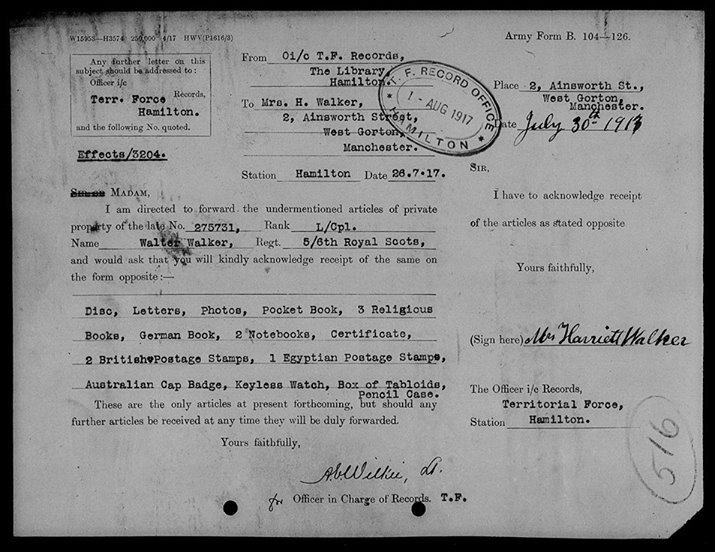 W15953—H3574 250,000 4/17 HWV(P1616/3)
Army Form B. 104—126.
Any further letter on this
subject should be addressed to:
Officer i/c
Records,
Terr. Force
Hamilton.
and the following No. quoted.
Effects/3204.
From Oi/c T.F. Records,
The Library,
Hamilton.
To Mrs. H. Walker,
2, Ainsworth Street,
West Gorton,
Manchester.
Station Hamilton Date 26.7.17.
T. F. RECORD OFFICE
1 - AUG 1917
HAMILTON
MADAM,
I am directed to forward the undermentioned articles of private
property of the late No. 275731, Rank L/Cpl.
Name Walter Walker, Regt. 5/6th Royal Scots,
and would ask that you will kindly acknowledge receipt of the same on
the form opposite:—
Disc, Letters, Photos, Pocket Book, 3 Religious
Books, German Book, 2 Notebooks, Certificate,
2 British Postage Stamps, 1 Egyptian Postage Stamps,
Australian Cap Badge, Keyless Watch, Box of Tabloids,
Pencil Case.
These are the only articles at present forthcoming, but should any
further articles be received at any time they will be duly forwarded.
Yours faithfully,
Wilkie, Lt.
for Officer in Charge of Records. T.F.
Place 2, Ainsworth St.,
West Gorton,
Manchester.
Date July 30th 1917
SIR,
I have to acknowledge receipt
of the articles as stated opposite
Yours faithfully,
(Sign here) Mrs Harriett Walker
The Officer i/c Records,
Territorial Force,
Station Hamilton.
516